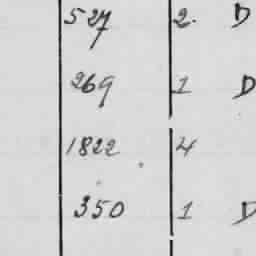 527 2. D
269 1 D
1822 4
350 1 D